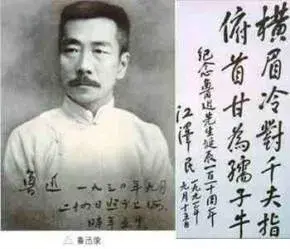 魯迅 一九三〇年九月
二十四日照于上海,
時年五十
△ 鲁迅像
橫眉冷對千夫指
俯首甘為孺子牛
纪念魯迅先生诞辰一百一十周年
江澤民
一九九一年
九月十五日